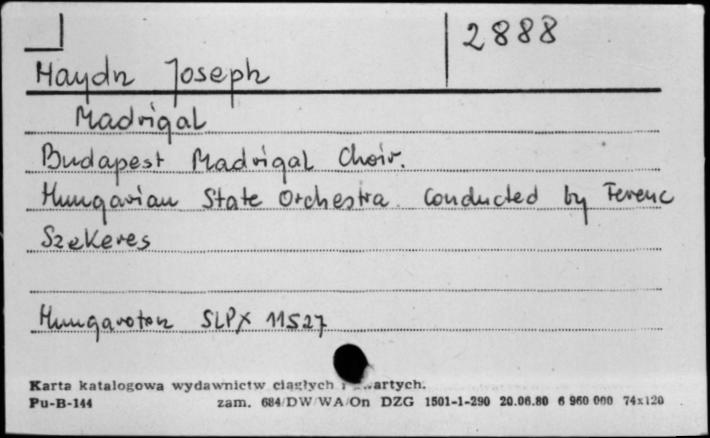 2888
Haydn Joseph
Madrigal
Budapest Madrigal Choir.
Hungarian State Orchestra conducted by Ferenc
Szekeres
Hungaroton SLPX 11527
Karta katalogowa wydawnictw ciągłych i zwartych.
Pu-B-144 zam. 684/DW/WA/On DZG 1501-1-290 20.06.80 6 960 000 74x120